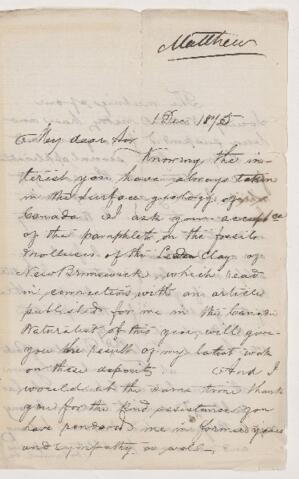 Matthew
1 Dec 1875
My dear Sir
Knowing the in-
terest you have always taken
in the surface geology of
Canada I ask your accept'ce
of the pamphlet on the fossil
Molluscs of the Leda Clay of
New Brunswick, which read
in connection with an article
published for me in the Canadn
Naturalist of this year, will give
you the result of my latest work
on these deposits And I
would at the same time thank
you for the kind assistance you
have rendered me in former years
and sympathy as well.